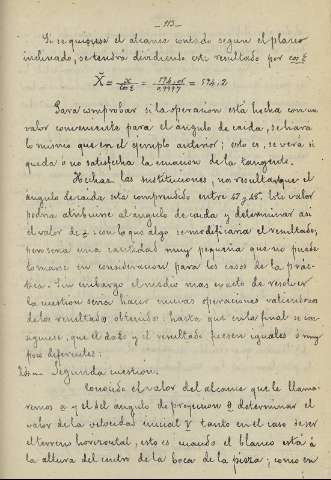 113
Si se quisiese el alcance contado segun el plano
inclinado, se tendrá dividiendo este resultado por cos ξ
X̌ = x / cos ε = 594,05 / 0,9997 = 594,2
Para comprobar si la operacion está hecha con un
valor conveniente para el ángulo de caida, se hará
lo mismo que en el ejemplo anterior; esto es, se verá si
queda ó no satisfecha la ecuacion de la tangente.
Hechas las sustituciones, nos resulta que el
ángulo de caida está comprendido entre y Este valor
podria atribuirse al ángulo de caida y determinar así
el valor de z con lo que algo se modificaria el resultado;
pero seria una cantidad muy pequeña que no puede
tomarse en consideracion para los casos de la prác-
tica. Sin embargo el medio mas exacto de resolver
la cuestion seria hacer nuevas operaciones valiendose
de los resultados obtenidos hasta que en la final se con-
siguiese, que el dato y el resultado fuesen iguales ó muy
poco diferentes:
Segunda cuestion.
Conocido el valor del alcance que le llama-
remos a y el del angulo de proyeccion θ determinar el
valor de la velocidad inicial V tanto en el caso de ser
el terreno horizontal, esto es, cuando el blanco está á
la altura del centro de la boca de la pieza; como en